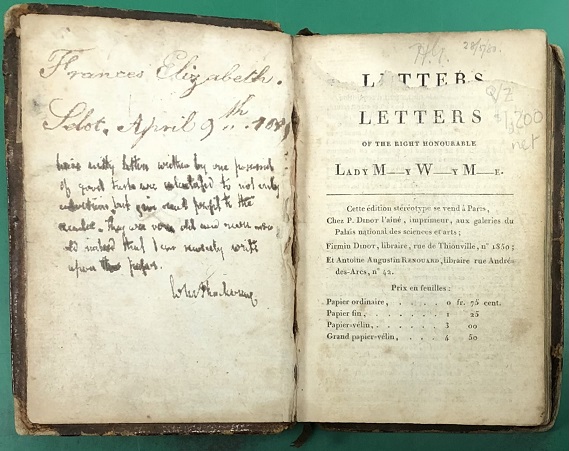 Frances Elizabeth.
April 9th
letters written by one possessed
of good taste are calculated to not only
but give real profit to the
reader. They are now old and
old indeed that I can scarcely write
upon the
28/5/80.
LETTERS
LETTERS
OF THE RIGHT HONOURABLE
LADY M——Y W——Y M——E.
Q/Z
1,200
net
Cette édition stéréotype se vend à Paris,
Chez P. DIDOT l'aîné, imprimeur, aux galeries du
Palais national des sciences et arts;
FIRMIN DIDOT, libraire, rue de Thionville, n° 1850;
Et ANTOINE AUGUSTIN RENOUARD, libraire rue André-
des-Arcs, n° 42.
Prix en feuilles:
Papier ordinaire, . . . . . 0 fr. 75 cent.
Papier fin, . . . . . . . 1 25
Papier-vélin, . . . . . . 3 00
Grand papier-vélin, . . . . 4 50